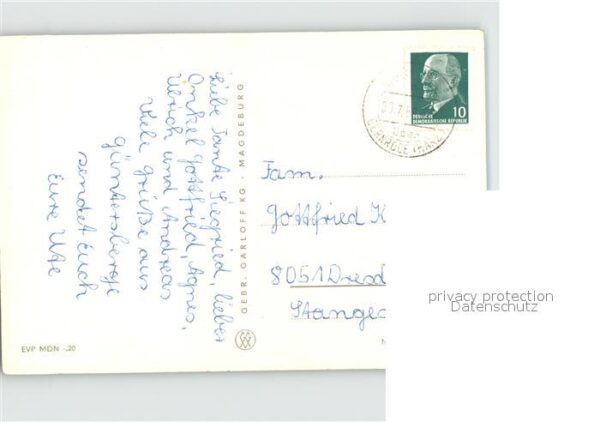 Liebe Tante Siegfried, lieber
Onkel Gottfried, Agnes,
Ulrich und Andreas
Viele Grüße aus
Güntersberge
sendet Euch
Eure Ute
GEBR. GARLOFF KG · MAGDEBURG
EVP MDN -,20
10
DEUTSCHE
DEMOKRATISCHE REPUBLIK
über
GERNRODE (HARZ)
Fam.
Gottfried K
8051 Dresd
Stange
privacy protection
Datenschutz